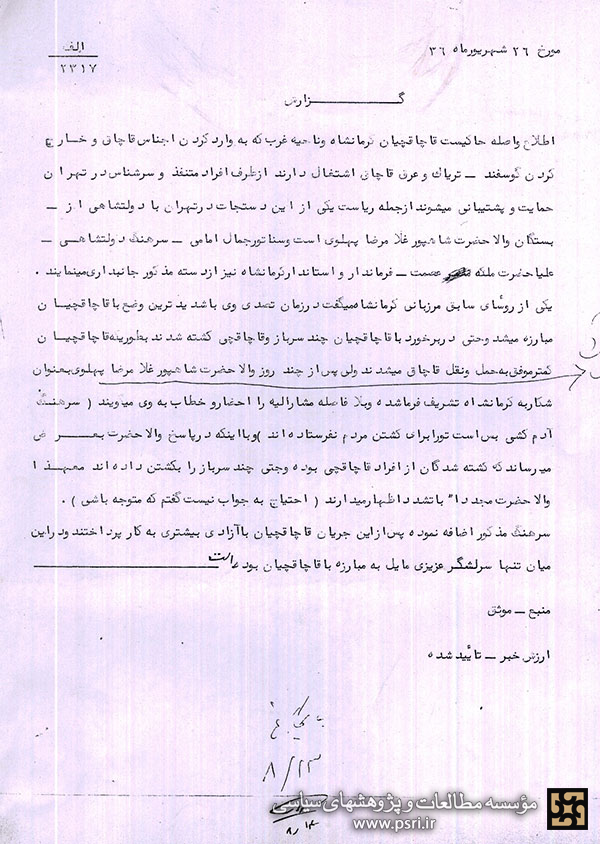 مورخ ۲۶ شهریورماه ۳۶
الف
۲۳۱۷
گزارش
اطلاع واصله حاکیست قاچاقچیان کرمانشاه وناحیه غرب که به وارد کردن اجناس قاچاق و خارج
کردن گوسفند ــ تریاک و عرق قاچاق اشتغال دارند ازطرف افراد متنفذ و سرشناس در تهران
حمایت و پشتیبانی میشوند ازجمله ریاست یکی از این دستجات درتهران با دولتشاهی از ــ
بستگان والاحضرت شاهپور غلامرضا پهلوی است وسناتورجمال امامی ــ سرهنگ دولتشاهی ــ
علیاحضرت ملکه عصمت ــ فرماندار و استاندارکرمانشاه نیز ازدسته مذکور جانبداری مینمایند .
یکی از روسای سابق مرزبانی کرمانشاه میگفت درزمان تصدی وی باشدیدترین وضع با قاچاقچیان
مبارزه میشد وحتی دربرخورد با قاچاقچیان چند سرباز وقاچاقچی کشته شدند بطوریکه قاچاقچیان
کمترموفق به حمل ونقل قاچاق میشدند ولی پس از چند روز والاحضرت شاهپور غلامرضا پهلوی بعنوان
شکاربه کرمانشاه تشریف فرماشده وبلا فاصله مشارالیه را احضارو خطاب به وی میگویند ( سرهنگ
آدم کشی بس است تورابرای کشتن مردم نفرستاده اند )وبااینکه درپاسخ والاحضرت بعرض
میرساند که کشته شدگان از افراد قاچاقچی بوده وحتی چند سرباز را بکشتن داده اند معهذا
والاحضرت مجددا" باتشدد اظهارمیدارند ( احتیاج به جواب نیست گفتم که متوجه باشی ) .
سرهنگ مذکور اضافه نموده پس ازاین جریان قاچاقچیان باآزادی بیشتری به کار پرداختند ودراین
میان تنها سرلشگر عزیزی مایل به مبارزه با قاچاقچیان بوده است
منبع ــ موثق
ارزش خبر ــ تأیید شده
۸/۲۳
۸/۱۴
مؤسسه مطالعات و پژوهشهای سیاسی
www.psri.ir